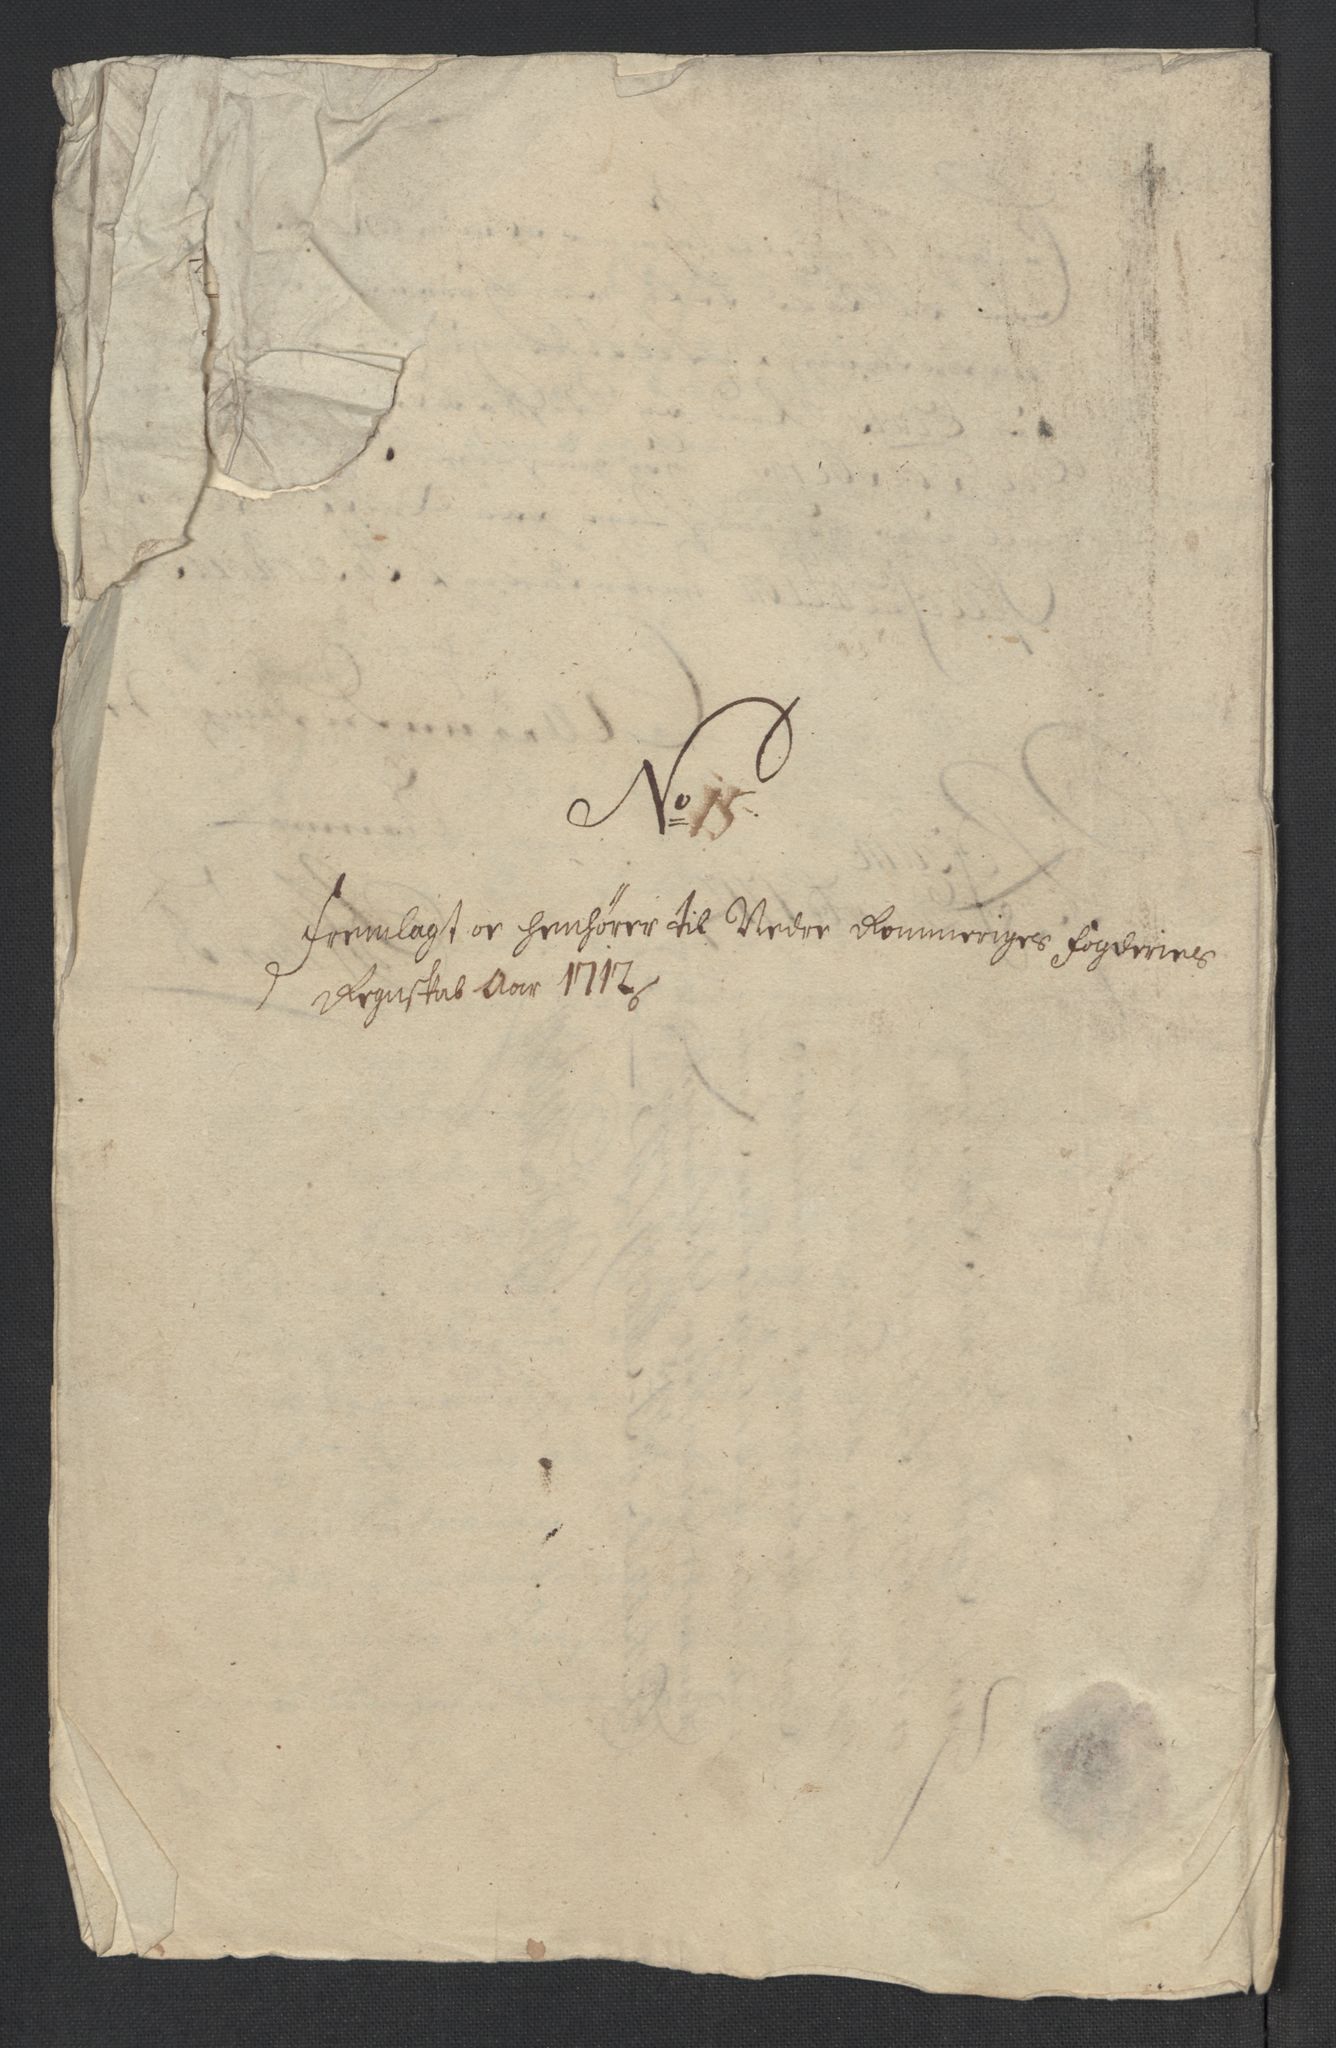 No 15.
Fremlagt oc henhører til Nedre Rommeriges fogderies
Regnskab Aar 1712